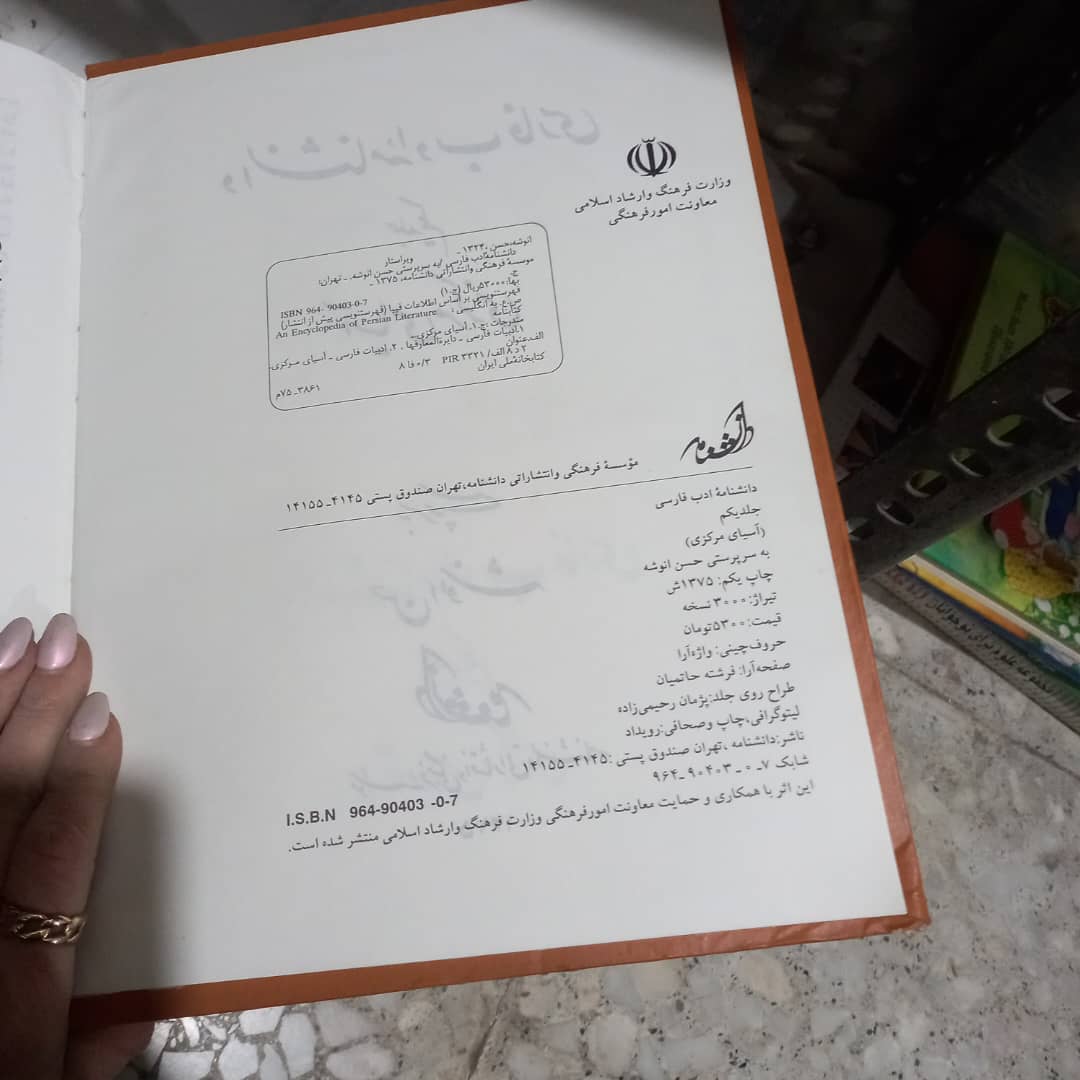 وزارت فرهنگ وارشاد اسلامی
معاونت امورفرهنگی
انوشه،حسن ،۱۳۲۴ - ویراستار
دانشنامهٔ ادب فارسی /به سرپرستی حسن انوشه. ـ تهران:
موسسهٔ فرهنگی وانتشاراتی دانشنامه، ۱۳۷۵ -
ج.
بها:۵۳۰۰۰ریال (ج.۱)
ISBN 964- 90403-0-7
فهرستنویسی بر اساس اطلاعات فیپا (فهرستنویسی پیش از انتشار)
ص.ع. به انگلیسی: An Encyclopedia of Persian Literature
کتابنامه
مندرجات :ج.۱. آسیای مرکزی.ــ
۱.ادبیات فارسی ـ دایرةالمعارفها . ۲. ادبیات فارسی ـ آسیای مرکزی.
الف.عنوان
۲ د ۸ الف/ PIR ۳۳۲۱ ۸ فا ۰/۳
کتابخانهٔملی ایران
۳۸۶۱ـ۷۵م
دانشنامه
مؤسسهٔ فرهنگی وانتشاراتی دانشنامه،تهران صندوق پستی ۴۱۴۵ـ۱۴۱۵۵
دانشنامهٔ ادب فارسی
جلدیکم
(آسیای مرکزی)
به سرپرستی حسن انوشه
چاپ یکم: ۱۳۷۵ش
تیراژ: ۳۰۰۰ نسخه
قیمت: ۵۳۰۰تومان
حروف‌چینی: واژه‌آرا
صفحه‌آرا: فرشته حاتمیان
طراح روی جلد:پژمان رحیمی‌زاده
لیتوگرافی،چاپ وصحافی:رویداد
ناشر:دانشنامه ،تهران صندوق پستی :۴۱۴۵ـ۱۴۱۵۵
شابک ۷ـ۰ـ۹۰۴۰۳ـ۹۶۴
I.S.B.N 964-90403 -0-7
این اثر با همکاری و حمایت معاونت امورفرهنگی وزارت فرهنگ وارشاد اسلامی منتشر شده است.